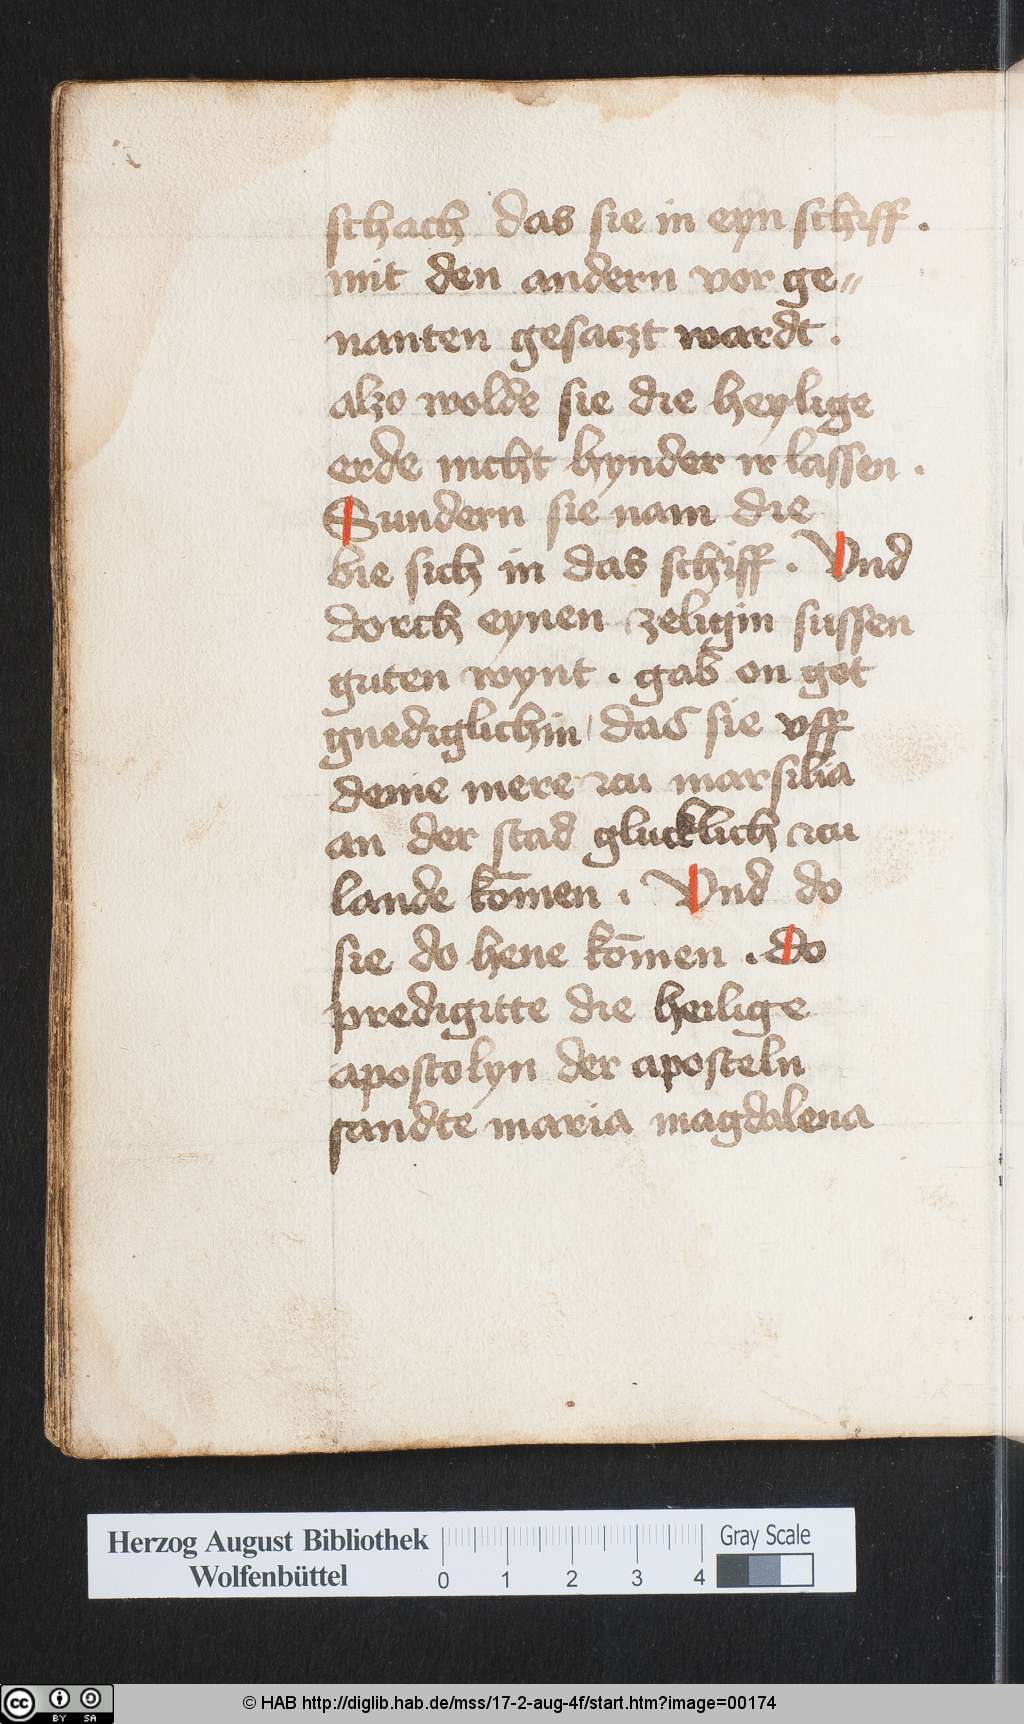 schach das sie in eyn schiff .
mit den andern vor ge⸗
nanten gesaczt wardt .
alzo wolde sie die heylige
erde nicht hynder ir lassen .
Sundern sie nam die
bie sich in das schiff . Vnd
dorch eynen zeligin sussen
guten wynt . gab on got
gnediglichin / das sie vff
deme mere zcu marsilia
an der stad glucklich zcu
lande kōmen . Vnd do
sie do hene kōmen . do
predigitte die heilige
apostolyn der aposteln
sandte maria magdalena
Herzog August Bibliothek
Wolfenbüttel
0 1 2 3 4
Gray Scale
cc BY SA
© HAB http://diglib.hab.de/mss/17-2-aug-4f/start.htm?image=00174